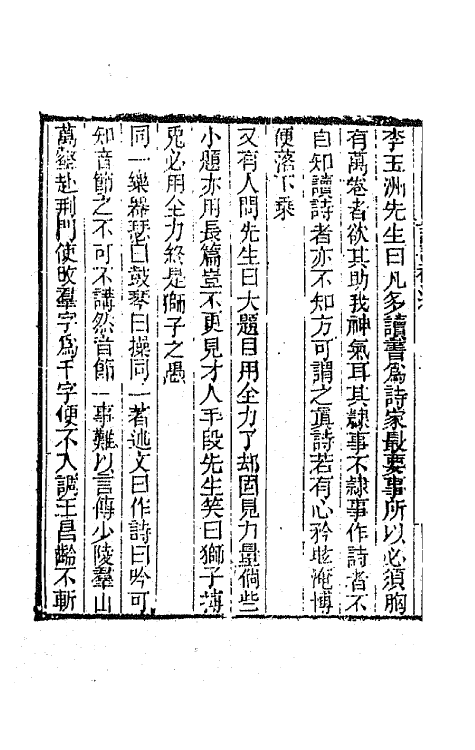 李玉洲先生曰凡多讀書爲詩家最要事所以必須胸
有萬卷者欲其助我神氣耳其隸事不隸事作詩者不
自知讀詩者亦不知方可謂之眞詩若有心矜炫淹博
便落下乘
又有人問先生曰大題目用全力了却固見力量倘些
小題亦用長篇豈不更見才人手段先生笑曰獅子搏
兎必用全力終是獅子之愚
同一樂器瑟曰鼓琴曰操同一著述文曰作詩曰吟可
知音節之不可不講然音節一事難以言傳少陵羣山
萬壑赴荆門使改羣字爲千字便不入調王昌齡不斬